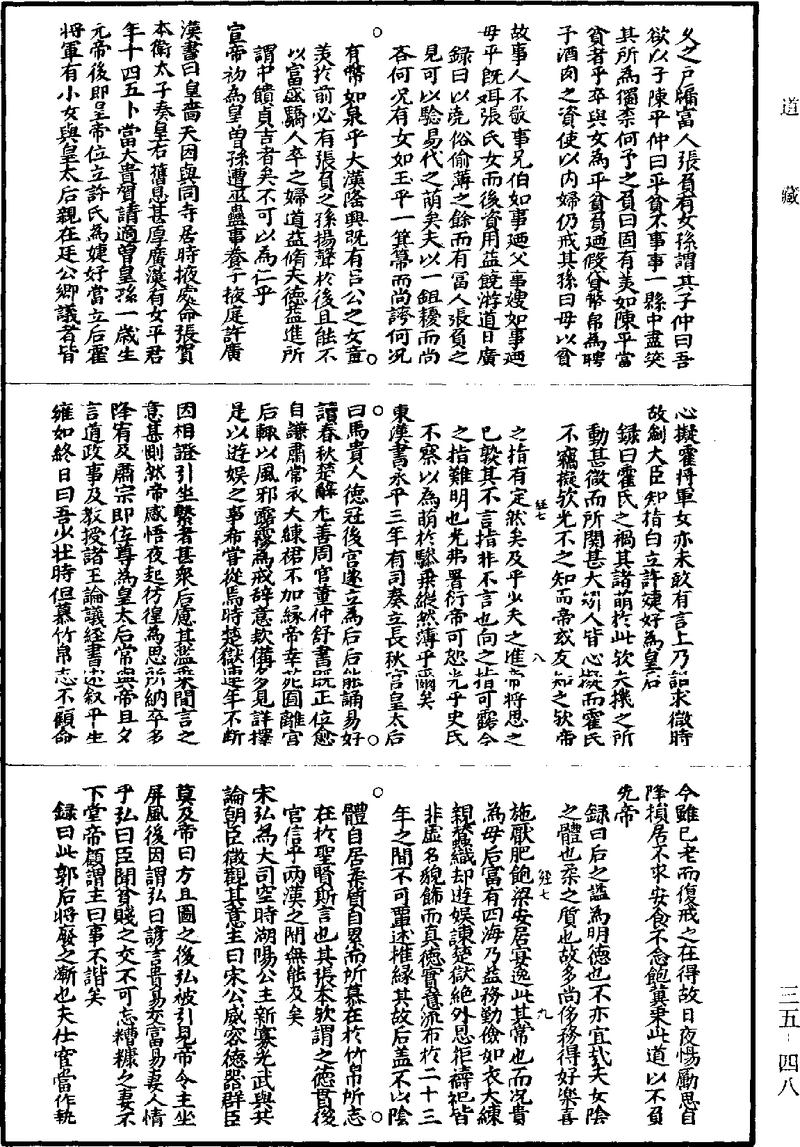 道藏
三五-四八
久之戶牖富人張負有女孫謂其子仲曰吾
欲以子陳平仲曰平貧不事事一縣中盡笑
其所為獨柰何予之負曰固有美如陳平富
貧者乎卒與女為平貧負廼假貸幣帛為聘
予酒肉之資使以內婦仍戒其孫曰毋以貧
故事人不敬事兄伯如事廼父事嫂如事廼
毋平既娶張氏女而後資用益饒游道日廣
錄曰以虎俗偷薄之餘而有富人張負之
見可以驗易代之萌矣夫以一鉏耰而尚
吝何況有女如玉乎一箕箒而尚誇何況
有幣如泉乎大漢隆興既有呂公之女童
美於前必有張負之孫揚聲於後且能不
以富盛驕人卒之婦道益脩夫德益進所
謂中饋貞吉者矣不可以為仁乎
宣帝初為皇曾孫遭巫蠱事養于掖庭許廣
漢書曰皇嗇夫因與同寺居時掖處命張賀
本衛太子奏皇右舊恩甚厚廣漢有女平君
年十四五卜當大貴賀請適曾皇孫一歲生
元帝後即皇帝位立許氏為婕妤當立后霍
將軍有小女與皇太后親在廷公卿議者皆
心擬霍將軍女亦未敢有言上乃詔求微時
故劍大臣知指白立許婕妤為皇后
錄曰霍氏之禍其諸萌於此欤夫機之所
動甚微而所關甚大矧人皆心擬而霍氏
不竊擬欤光不之知而帝或友知之欤帝
之指有定然矣及乎少夫之進帝將思之
已孰其不言指非不言也向之指可露今
之指難明也光弗署衍帝可恕光乎史氏
不察以為萌於驂乗縱然薄乎爾矣
經七
八
東漢書永平三年有司奏立長秋宮皇太后
曰馬貴人德冠後宮遂立為后后能誦易好
讀春秋楚辭尤善周官董仲舒書既正位愈
自謙肅常衣大練裙不加緣帝幸苑囿離宮
后輙以風邪露霧為戒辞意欵俻多見詳擇
是以遊娛之事希嘗從焉時楚獄連年不斷
因相證引坐繫者甚衆后慮其濫乘間言之
意甚惻然帝感悟夜起彷徨為思所納卒多
降宥及肅宗即位尊為皇太后常與帝旦夕
言道政事及教授諸王論議經書述叙平生
雍如終日曰吾少壯時但慕竹帛志不顧命
今雖已老而復戒之在得故日夜惕勵思自
降損居不求安食不念飽冀乗此道以不負
先帝
錄曰后之謚為明德也不亦宜㢤夫女陰
之體也柔之质也故多尚侈務得好樂喜
施厭肥飽梁安居宴逸此其常也而況貴
為毋后富有四海乃益務勤儉如衣大練
親蠶織却遊娛諫楚獄絕外恩拒禱祀皆
非虛名貌飾而真德實意流布於二十三
年之間不可單述推緣其故后蓋不以陰
經七
九
體自居柔質自累而所慕在於竹帛所志
在於聖賢斯言也其張本欤謂之德貫後
官信乎兩漢之間無能及矣
宋弘為大司空時湖陽公主新寡光武與共
論朝臣微觀其意主曰宋公威容德器群臣
莫及帝曰方且圖之後弘被引見帝令主坐
屏風後因謂弘曰諺言貴易交富易妻人情
乎弘曰臣聞貧賤之交不可忘糟糠之妻不
下堂帝顧謂主曰事不諧矣
錄曰此郭后將廢之漸也夫仕宦當作執